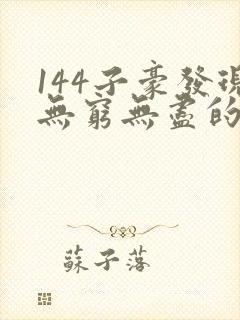 144子豪發現
無窮無盡的
蘇子落